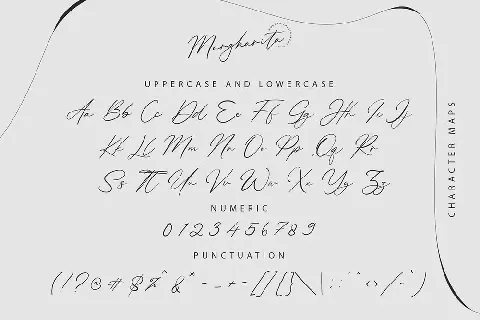 Margharita
UPPERCASE AND LOWERCASE
Aa Bb Cc Dd Ee Ff Gg Hh Ii Jj
Kk Ll Mm Nn Oo Pp Qq Rr
Ss Tt Uu Vv Ww Xx Yy Zz
NUMERIC
0 1 2 3 4 5 6 7 8 9
PUNCTUATION
( ! ? @ # $ % ^ & * - _ + - [ ] { } \ | : ; " ' < > / . ` )
CHARACTER MAPS